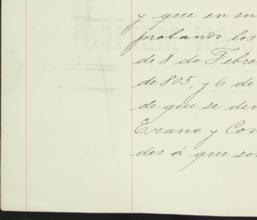 y que en su
probando los
de 8 de Febre
de 805, y 6 de
de que se den
Erario y Con
des á que so